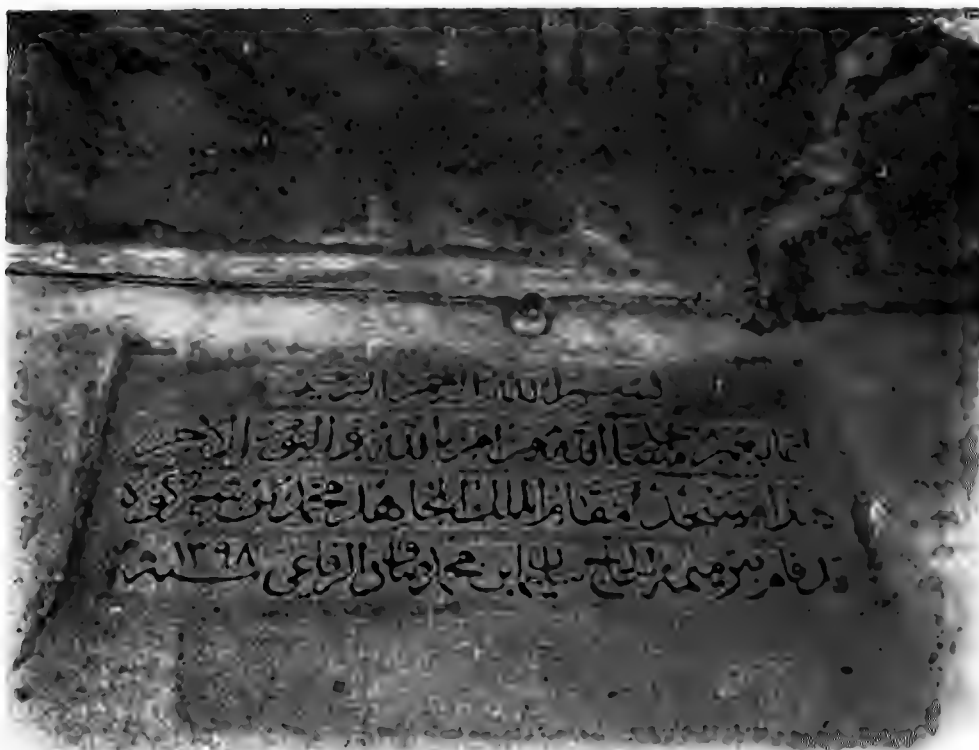 بسم الله الرحمن الرحيم
انما يعمر مساجد الله من امن بالله واليوم الاخر
هذا مسجد مقام الملك المجاهد محمد بن
قد قام بترميمه الحاج ابن محمد الرفاعي سنة ١٣٩٨